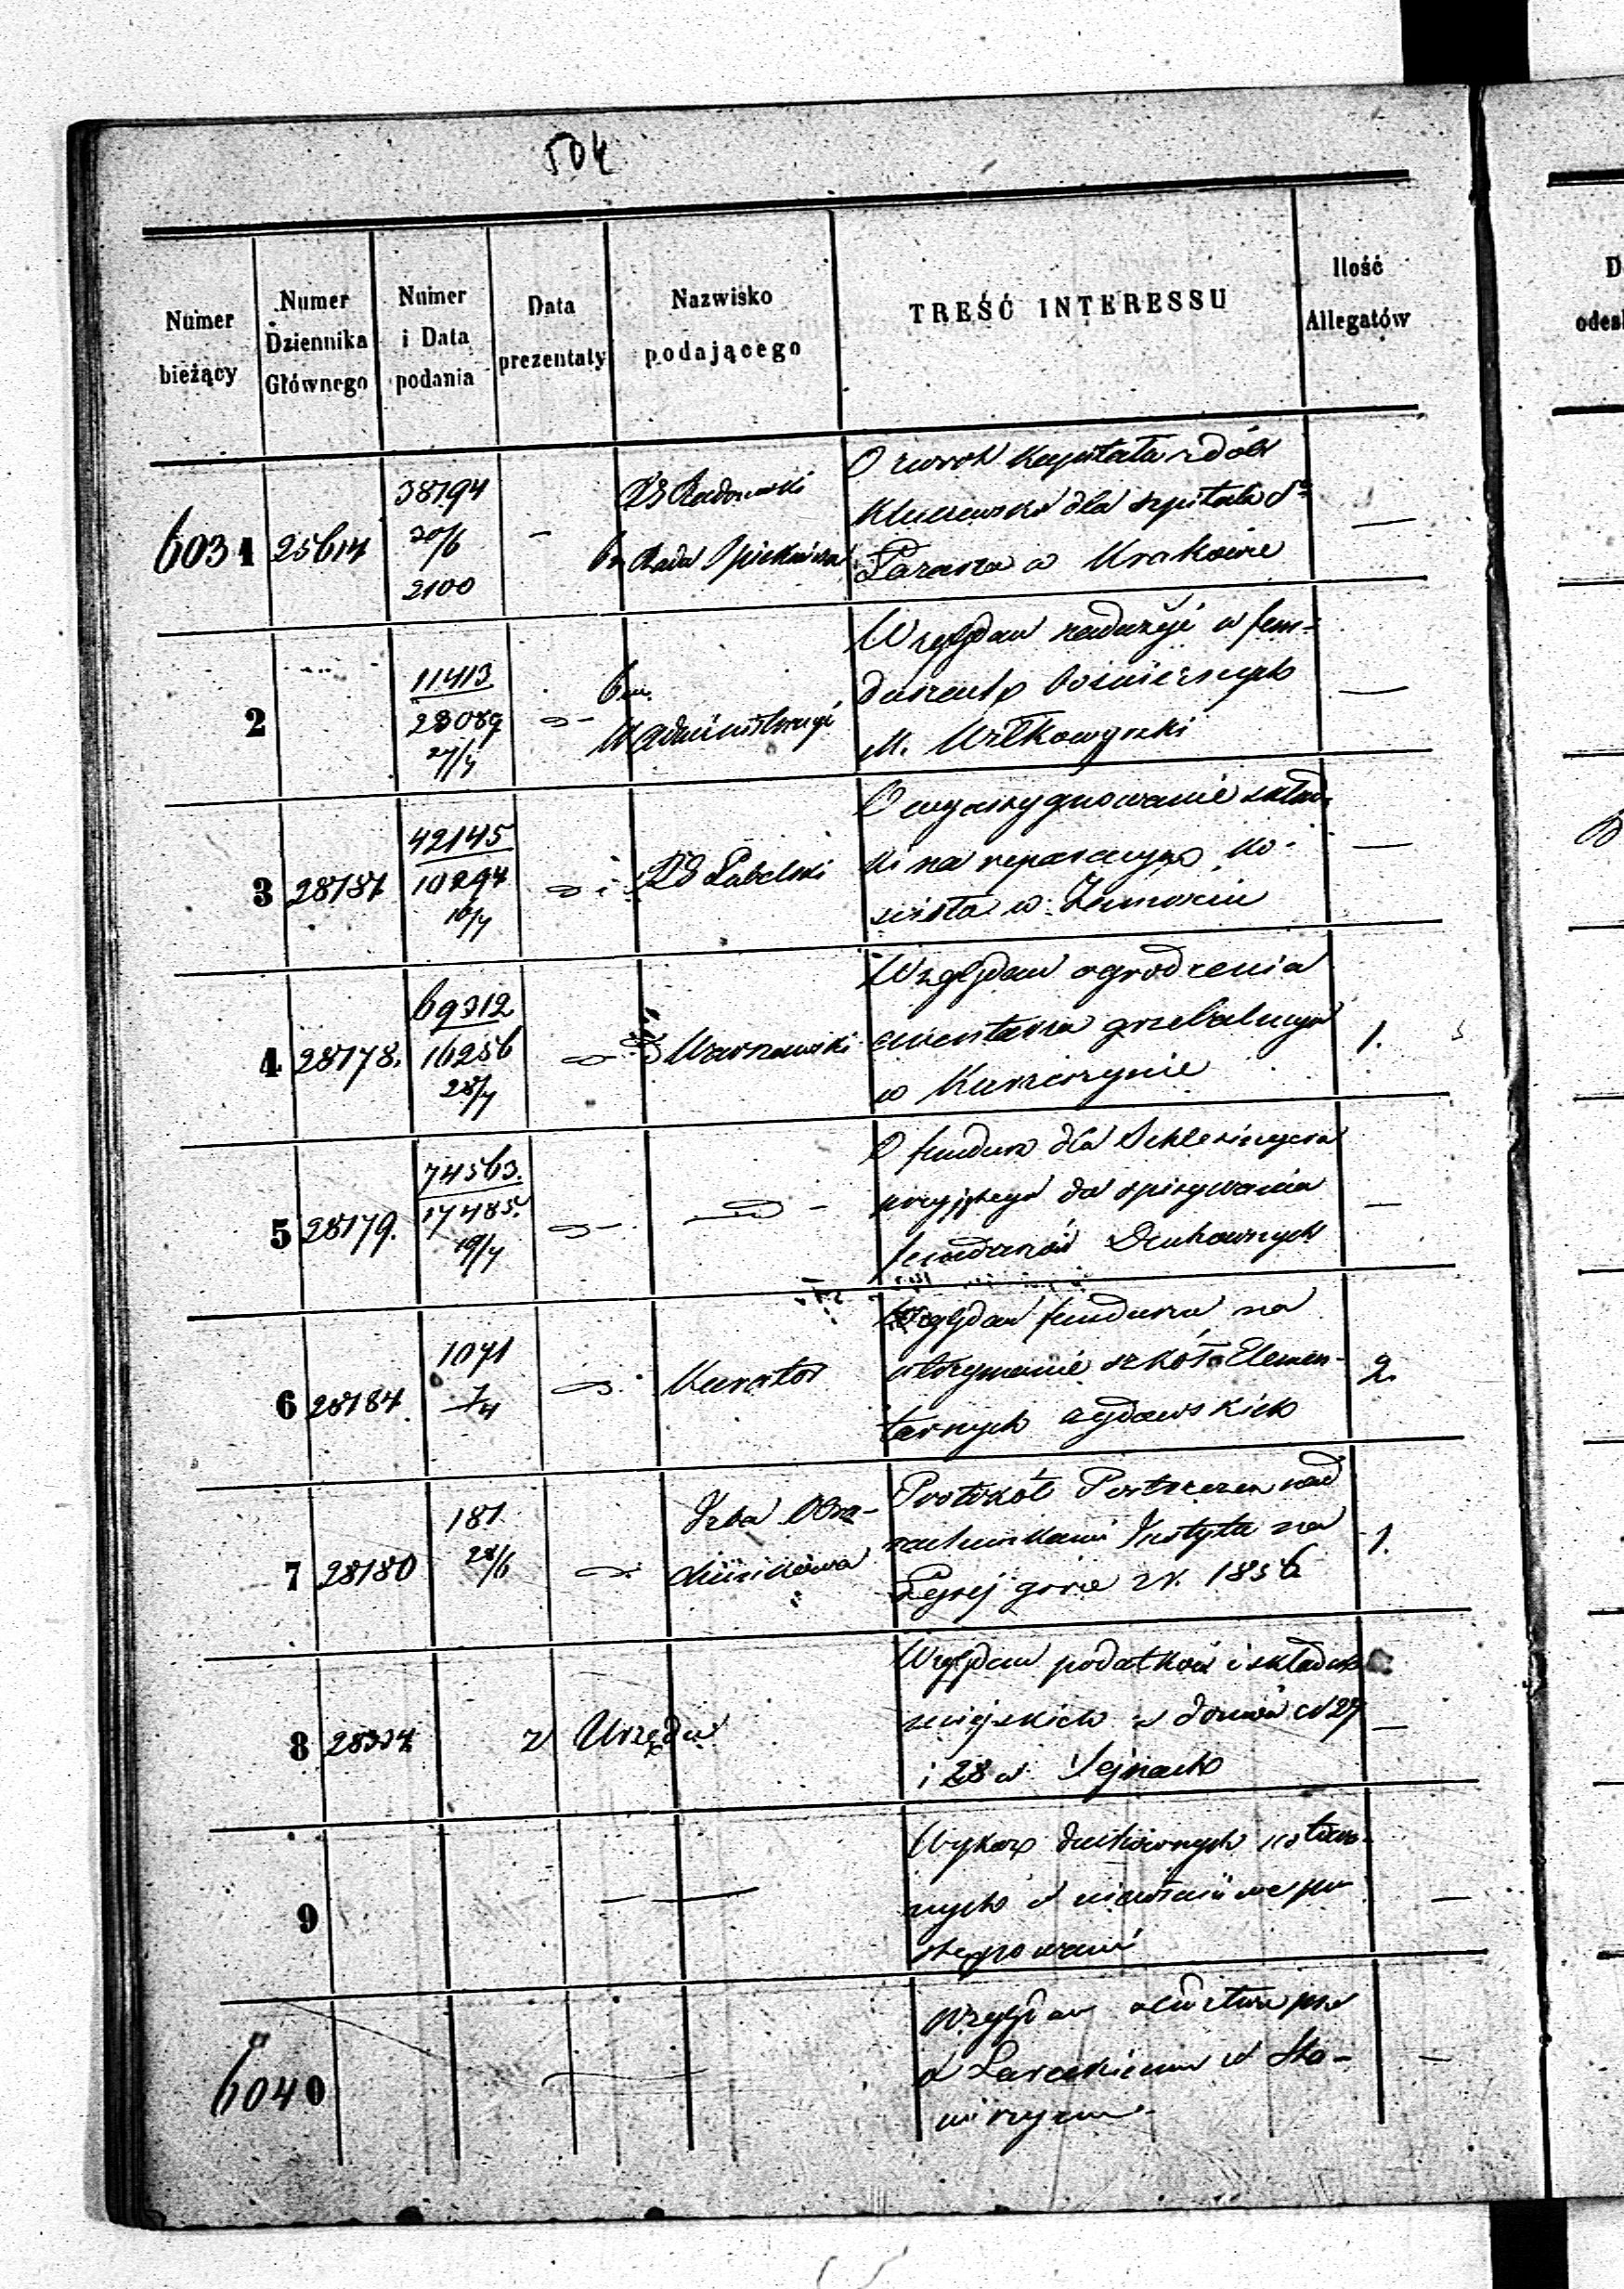 504
Numer bieżący
Numer Dziennika Głównego
Numer i Data podania
Data prezentaty
Nazwisko podającego
TREŚĆ INTERESSU
Ilość Allegatów
D
odesł
6031 25614 38794 20/6 2100 – RG Radomski
Rada Opiekuńcza
O zwrot kapitału z dóbr
Kluczewsko dla szpitala Sgo
Łazarza w Krakowie —
2 11413 28089 27/7
Administracyi
Względem nadużyć w fun-
duszach
M. Wiłkowyszki —
3 28187 42145 10294 16/7 RG Lubelski
O wyasygnowanie skład-
ki na reparacyę ko-
ścioła w Zamościu —
4 28178. 69312 16256 28/7 Warszawski
Względem ogrodzenia
cmentarza grzebalnego
w 1.
5 28179. 74563. 17485. 19/7
O fundusz dla Schlesingera
przyjętego do spisywania
funduszów Duchownych —
6 28184. 1071 7/7 Kurator
Względem funduszu na
utrzymanie szkół Elemen-
tarnych żydowskich 2.
7 28180 181 28/6 Izba Obra-
chunkowa
Protokół Postrzeżen nad
rachunkami Instytu na
Łysej górze z r. 1856 1.
8 28334 z Urzędu
Względem podatków i składek
miejskich z domów N 27
i 28 w Sejnach —
9 — —
Wykaz duchownych
nych
postępowanie —
6040
Względem
—